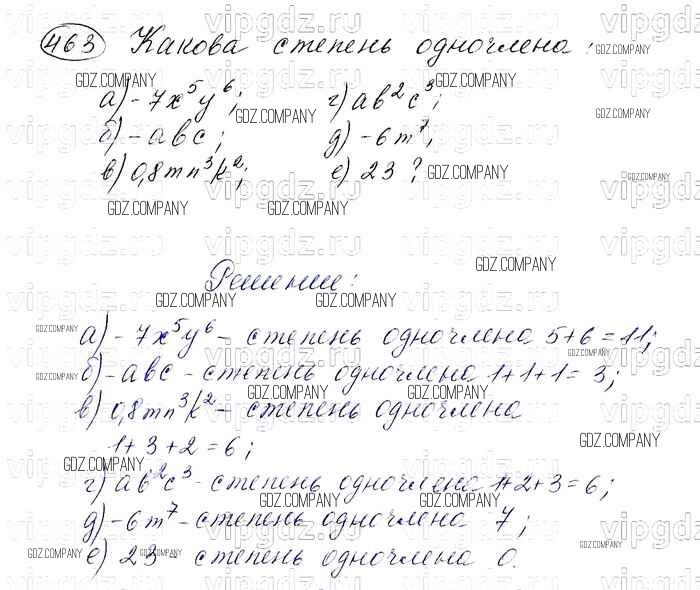 463 Какова степень одночлена:
а) -7x⁵y⁶; г) ab²c³;
б) -abc; д) -6m⁷;
в) 0,8mn³k²; е) 23 ?
Решение:
а) -7x⁵y⁶ - степень одночлена 5+6=11;
б) -abc - степень одночлена 1+1+1=3;
в) 0,8mn³k² - степень одночлена
1+3+2=6;
г) ab²c³ - степень одночлена 1+2+3=6;
д) -6m⁷ - степень одночлена 7;
е) 23 - степень одночлена 0.
GDZ.COMPANY
vipgdz.ru